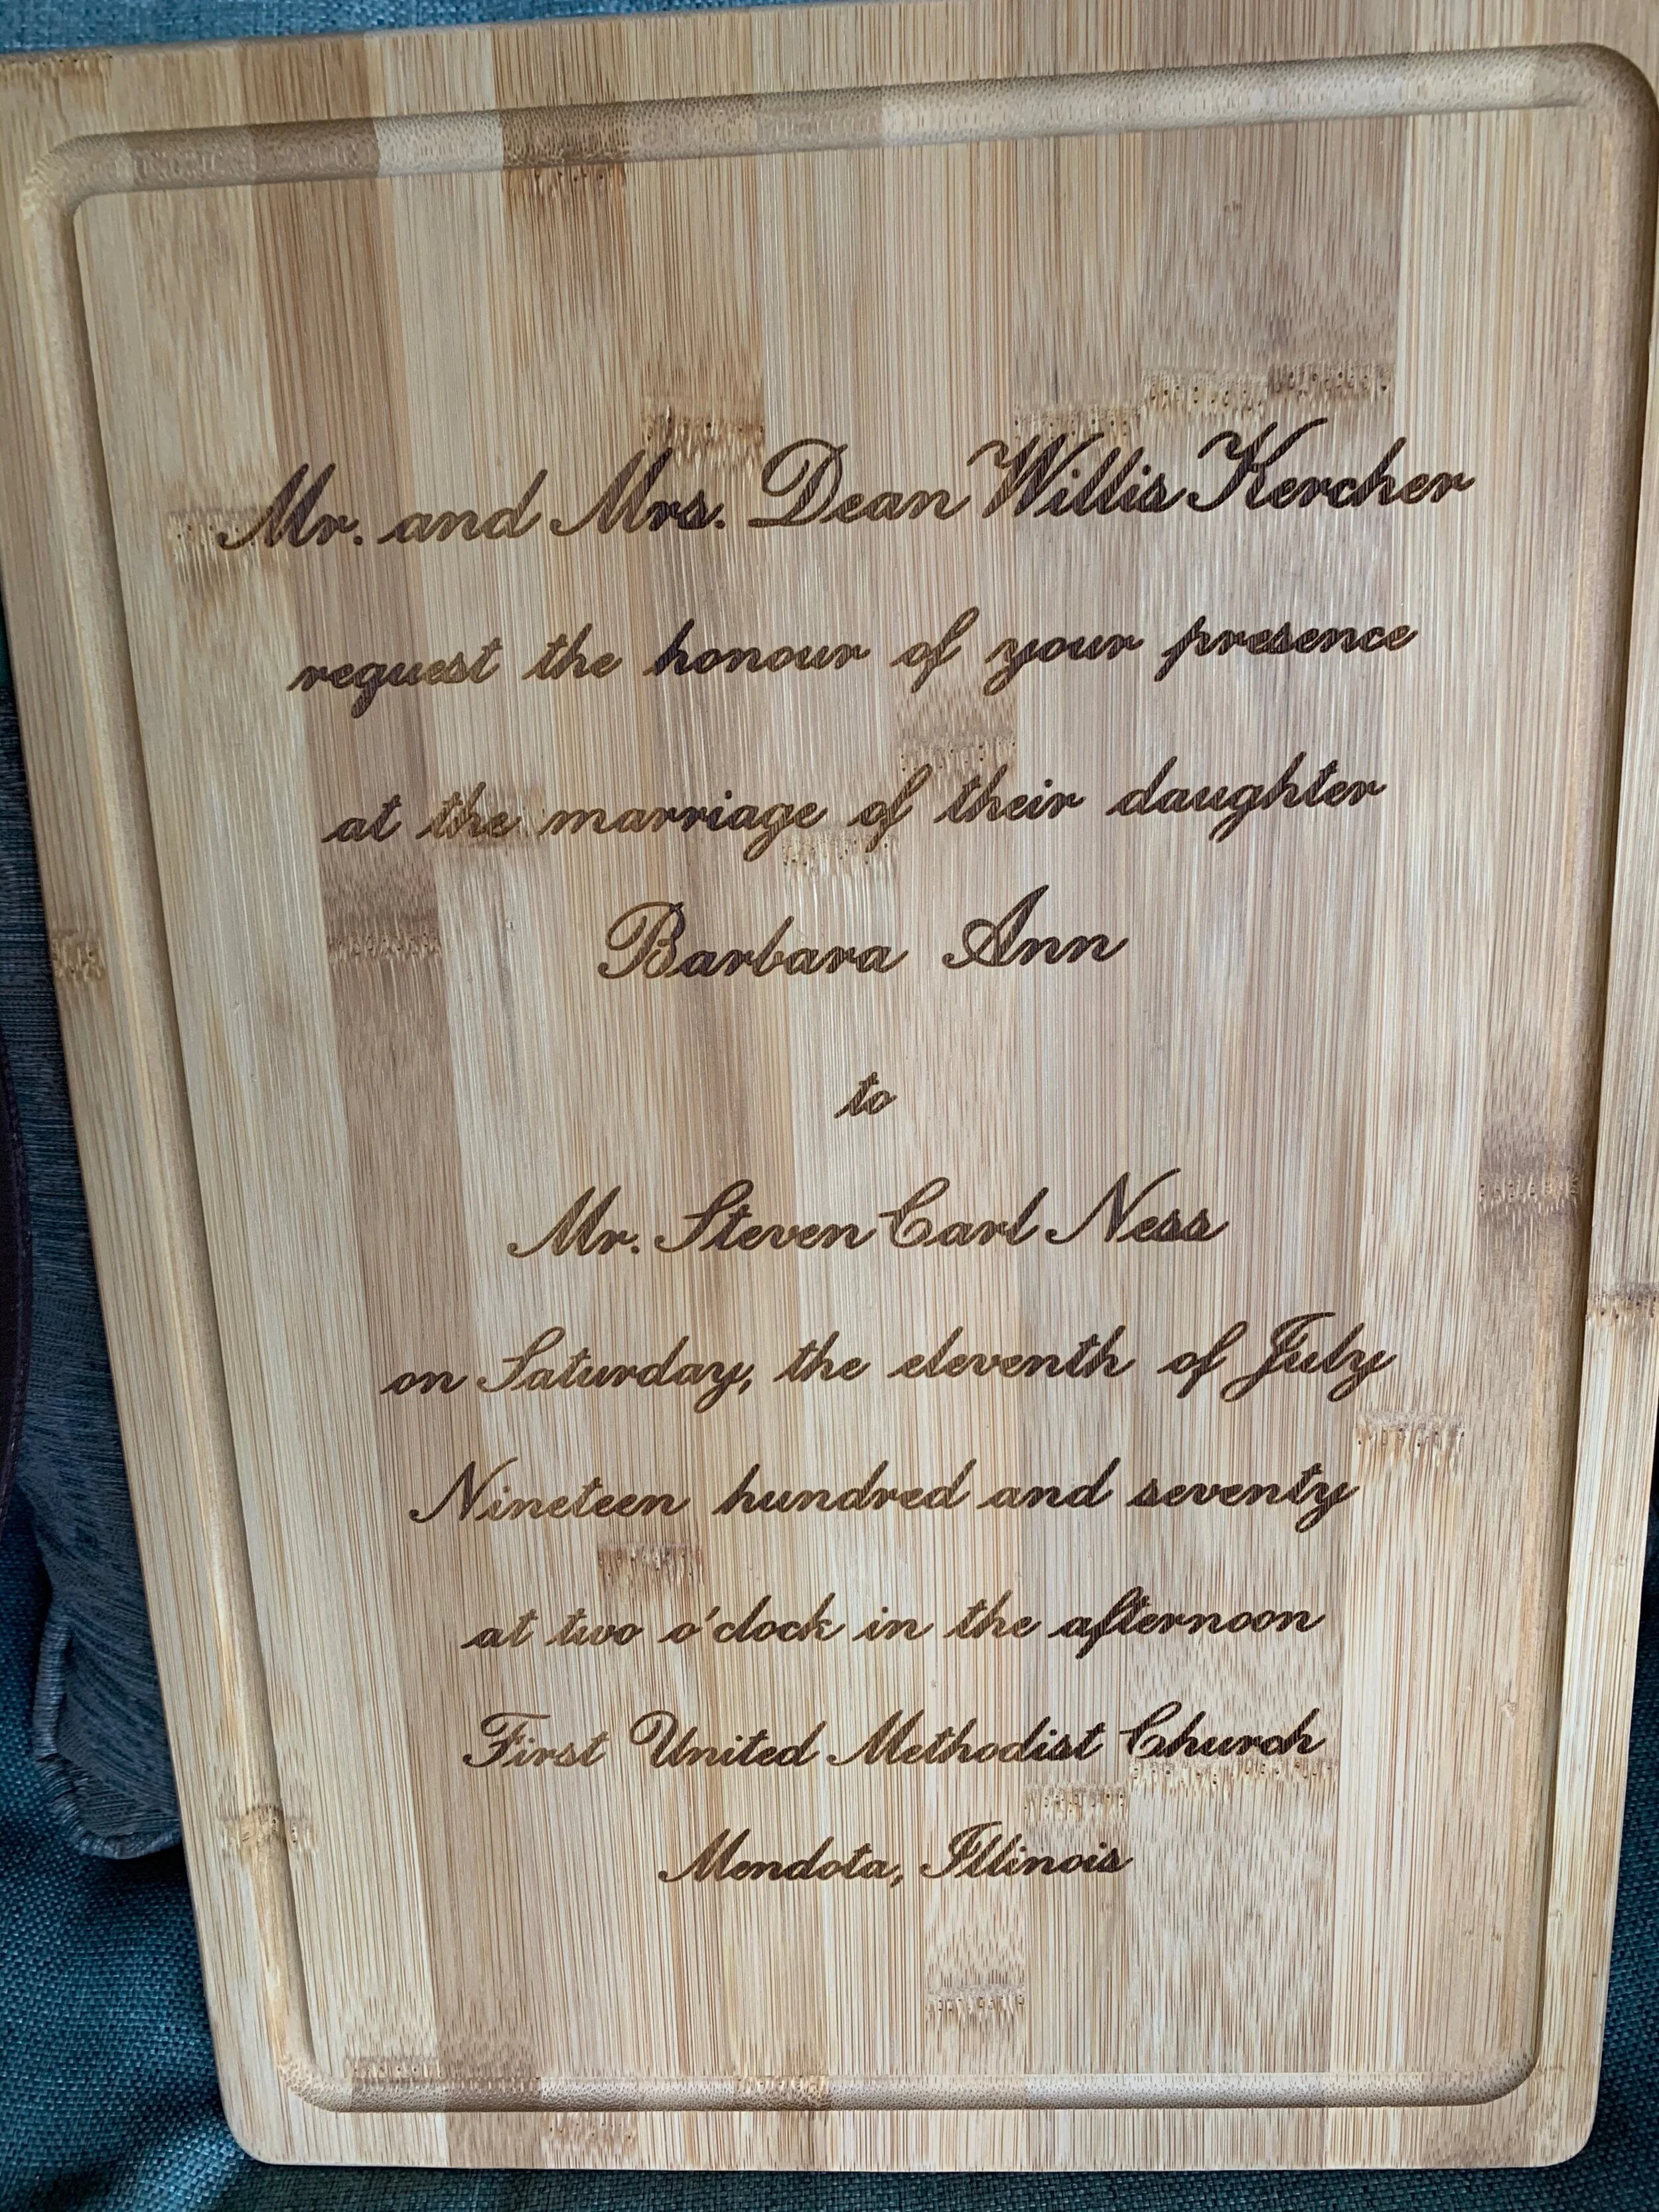 Mr. and Mrs. Dean Willis Kercher
request the honour of your presence
at the marriage of their daughter
Barbara Ann
to
Mr. Steven Carl Ness
on Saturday, the eleventh of July
Nineteen hundred and seventy
at two o'clock in the afternoon
First United Methodist Church
Mendota, Illinois